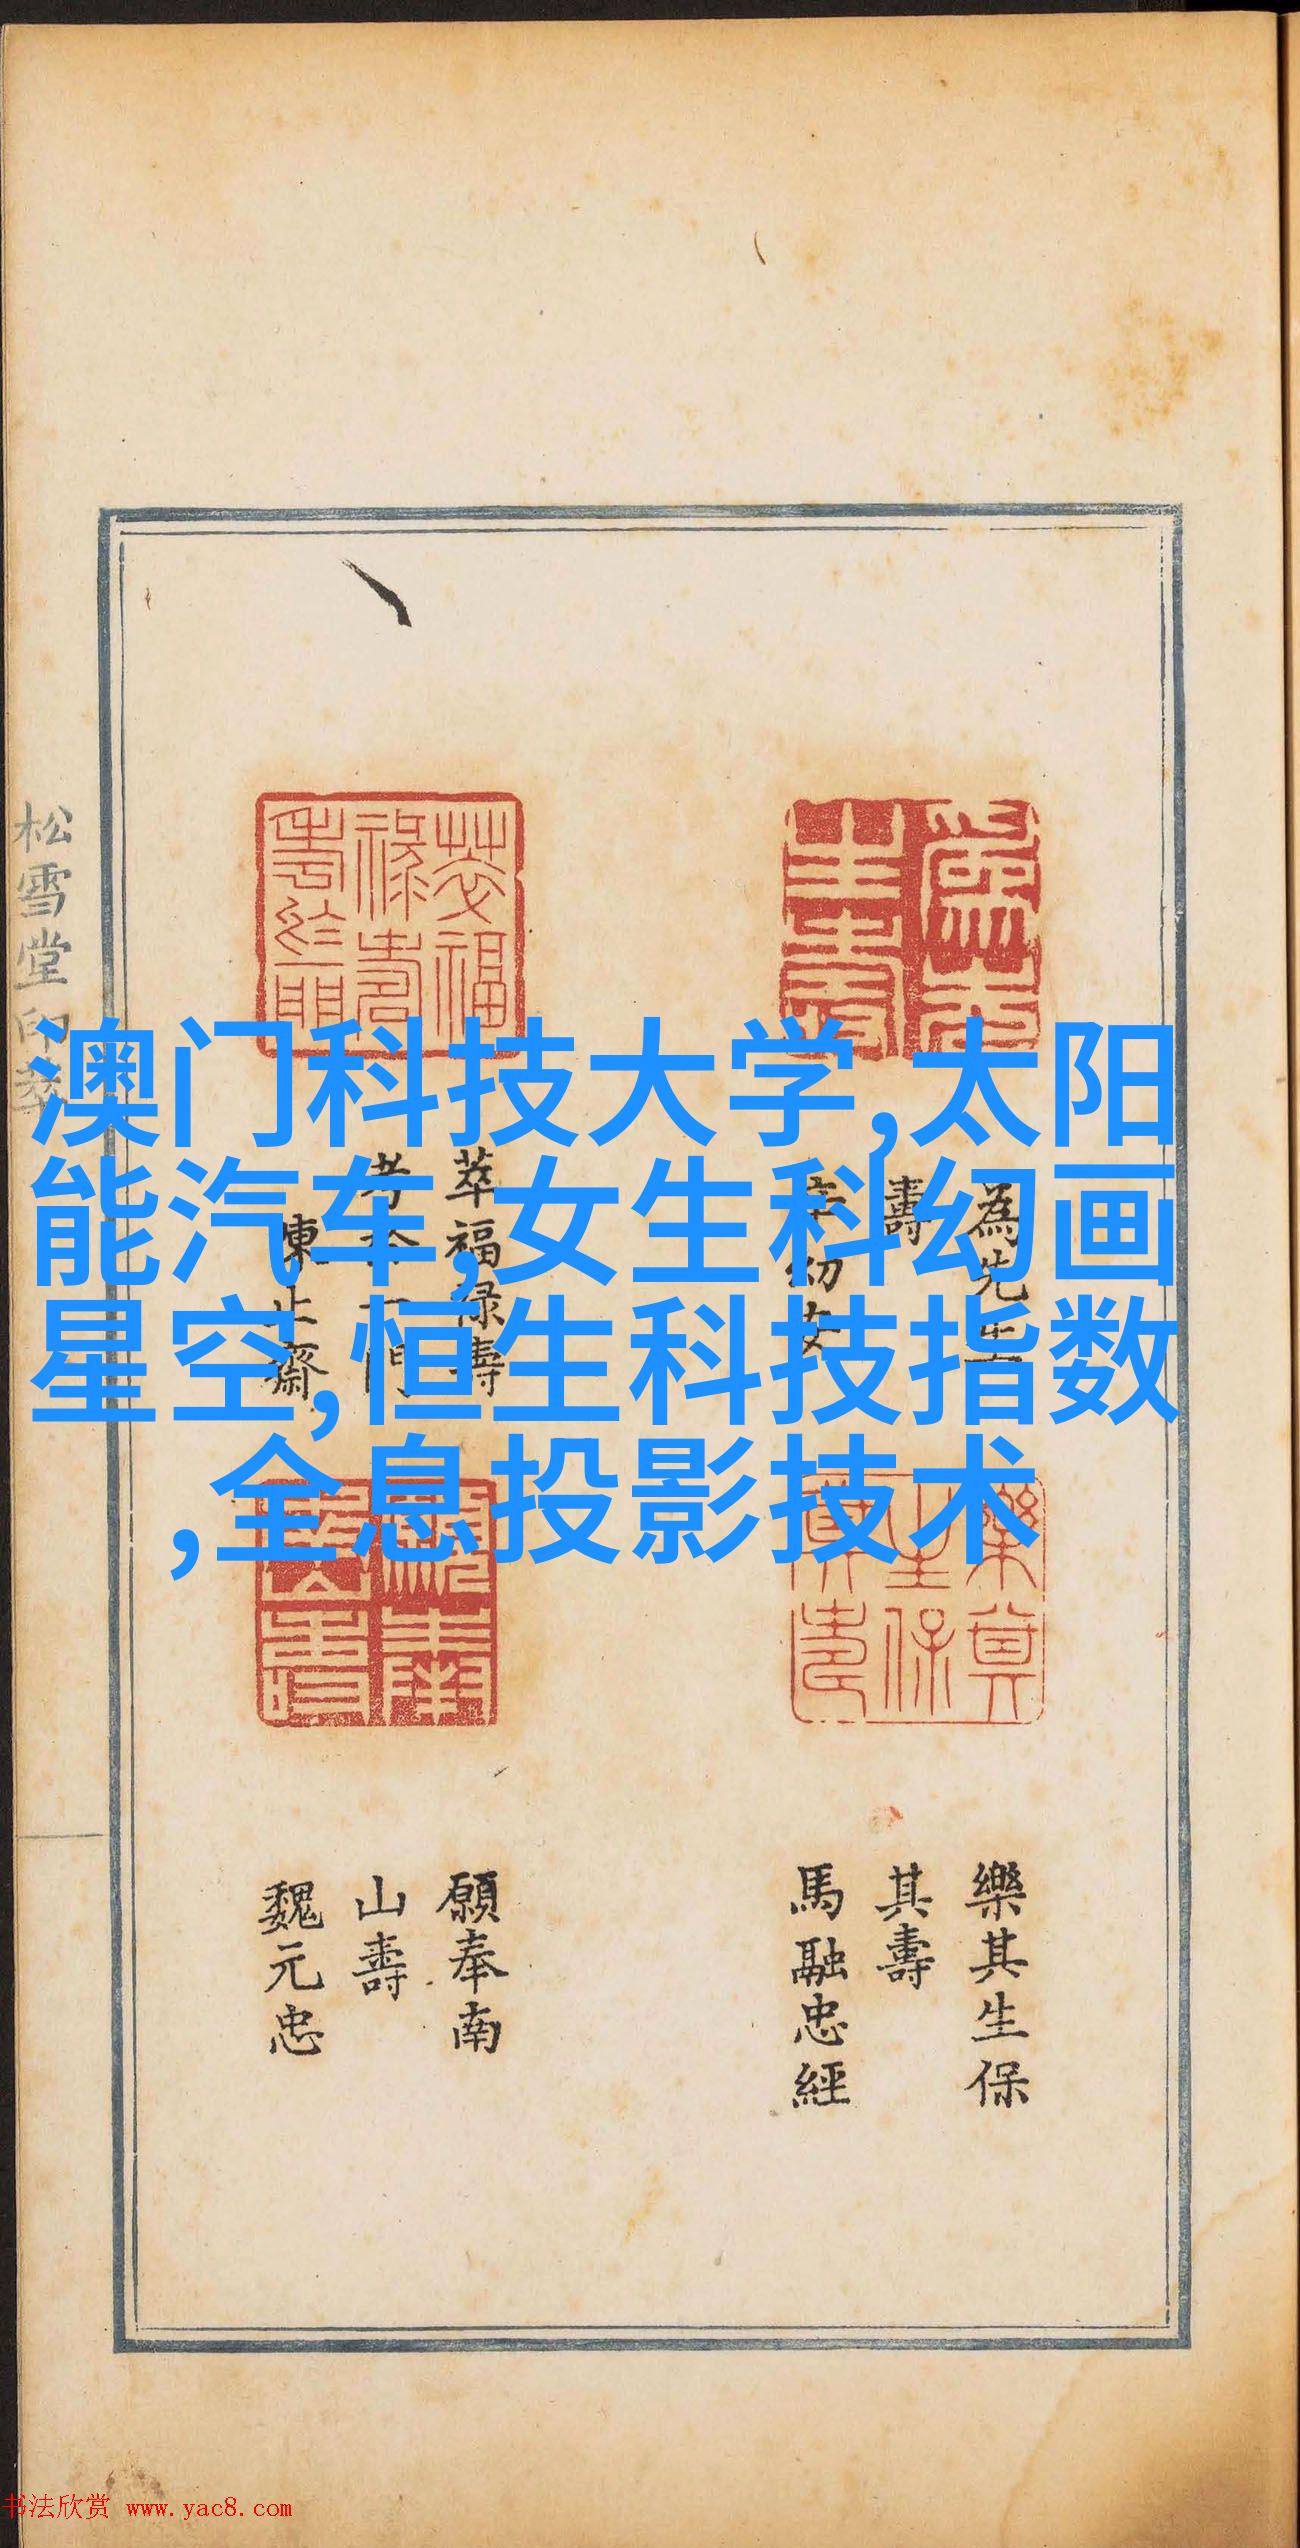 澳门科技大学,太阳
能汽车,女生科幻画
星空,恒生科技指数
,全息投影技术
松雪堂印萃
為先生
壽
萃福祿壽
樂其生保
其壽
馬融忠經
願奉南
山壽
魏元忠
书法欣赏 www.yac8.com